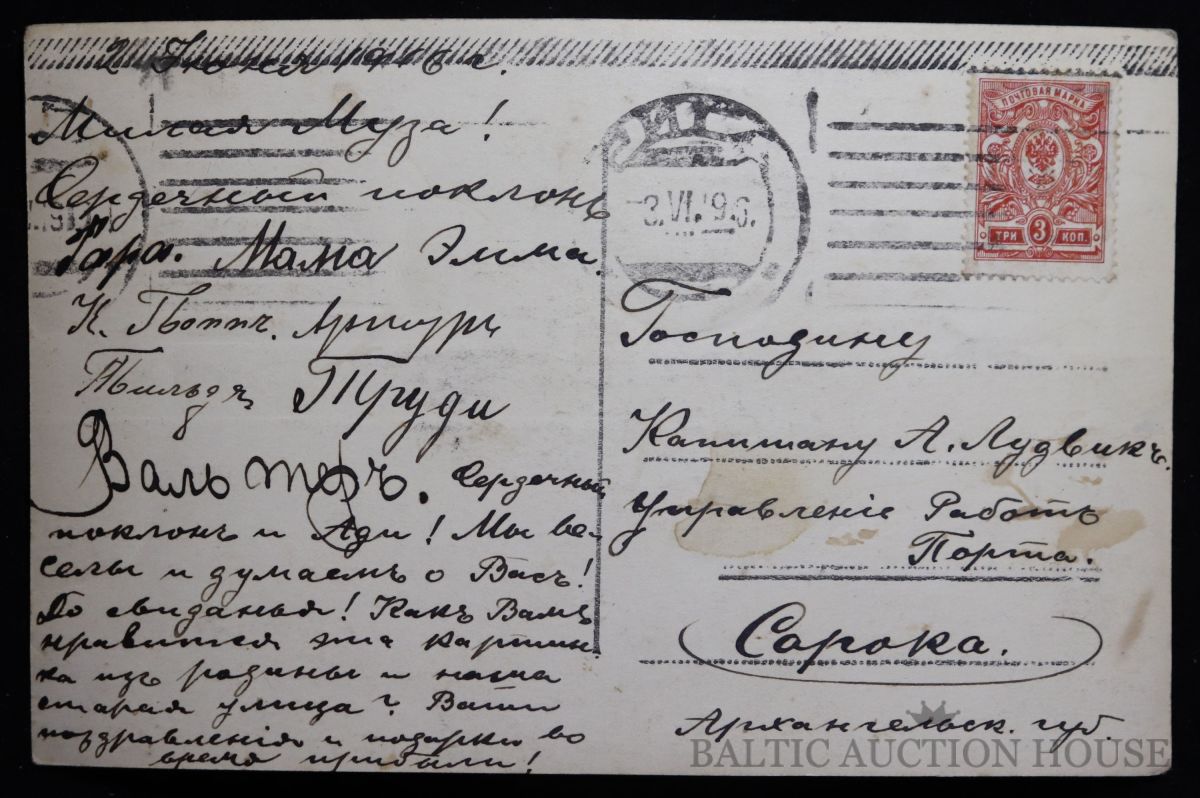 2 Июня 1916 г.
Милая Муза!
Сердечный поклонъ
Мама Эмма.
К. Артуръ
Тильда Труди
Вальтеръ. Сердечный
поклонъ и Ади! Мы ве-
селы и думаемъ о Васъ!
До свиданья! Какъ Вамъ
нравится эта картин-
ка изъ родины и наша
старая улица? Ваши
поздравленія и подарки во
время прибыли!
3.VI.19 6.
ПОЧТОВАЯ МАРКА
ТРИ 3 КОП.
Господину
Капитану А. Лудвикъ.
Управленіе Работъ
Порта.
Сорока.
Архангельск. губ.
BALTIC AUCTION HOUSE